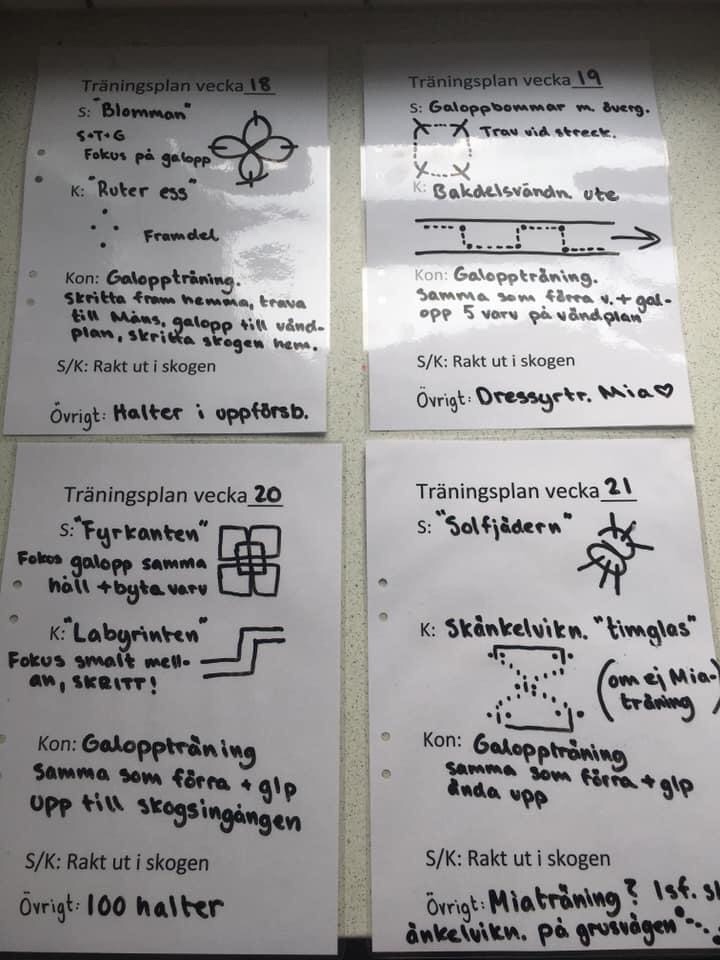 Träningsplan vecka 18
S: "Blomman"
S+T+G
Fokus på galopp
K: "Ruter ess"
Framdel
Kon: Galoppträning.
Skritta fram hemma, trava
till Måns, galopp till vänd-
plan, skritta skogen hem.
S/K: Rakt ut i skogen
Övrigt: Halter i uppförsb.
Träningsplan vecka 19
S: Galoppbommar m. överg.
Trav vid streck.
K: Bakdelsvändn. ute
Kon: Galoppträning.
Samma som förra v. + gal-
opp 5 varv på vändplan
S/K: Rakt ut i skogen
Övrigt: Dressyrtr. Mia♡
Träningsplan vecka 20
S: "Fyrkanten"
Fokus galopp samma
håll + byta varv
K: "Labyrinten"
Fokus smalt mell-
an, SKRITT!
Kon: Galoppträning
Samma som förra + glp
upp till skogsingången
S/K: Rakt ut i skogen
Övrigt: 100 halter
Träningsplan vecka 21
S: "Solfjädern"
K: Skänkelvikn. "timglas"
(om ej Mia-
träning)
Kon: Galoppträning
samma som förra + glp
ända upp
S/K: Rakt ut i skogen
Övrigt: Miaträning? Isf. sk
änkelvikn. på grusvägen